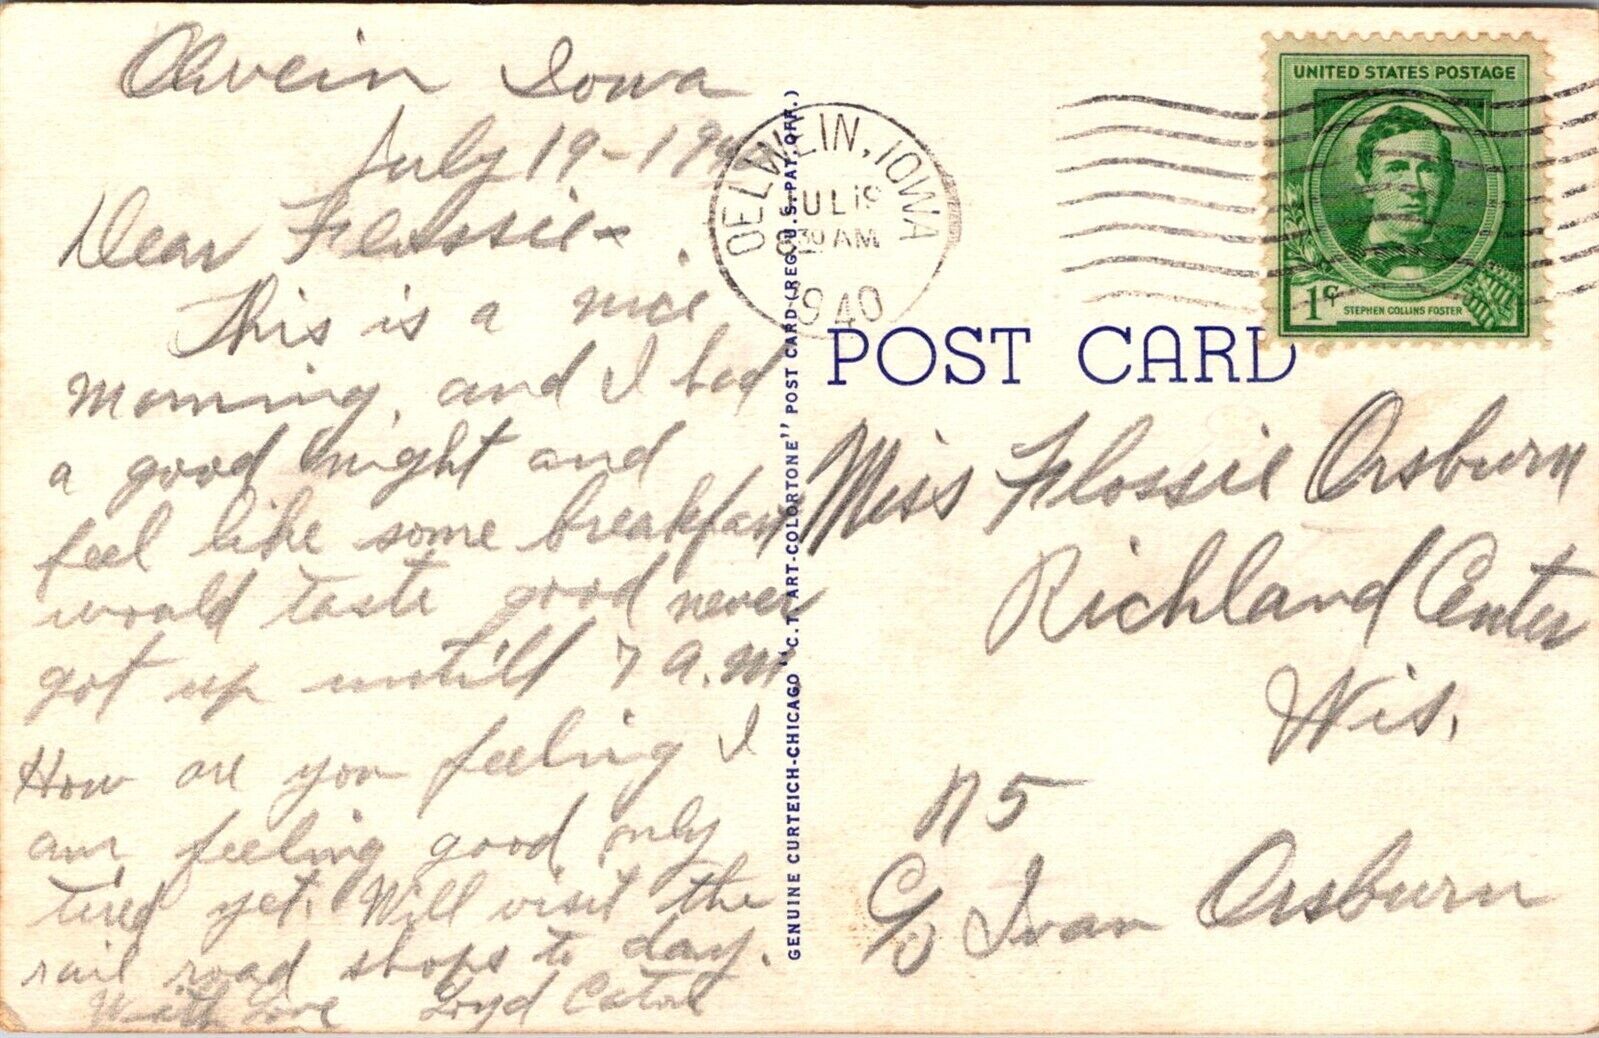 Olwein Iowa
July 19-194
Dear Flossie-
This is a nice
morning, and I had
a good night and
feel like some breakfast
would taste good never
got up untill 7 a.m.
How are you feeling I
am feeling good only
tired yet. Will visit the
rail road shops to day.
With Love Loyd
OELWEIN, IOWA
JUL 19
30 AM
1940
UNITED STATES POSTAGE
1¢
STEPHEN COLLINS FOSTER
POST CARD
GENUINE CURTEICH-CHICAGO "C.T. ART-COLORTONE" POST CARD (REG. U.S. PAT. OFF.)
Miss Flossie Orsburn
Richland Center
Wis.
R 5
c/o Ivan Orsburn